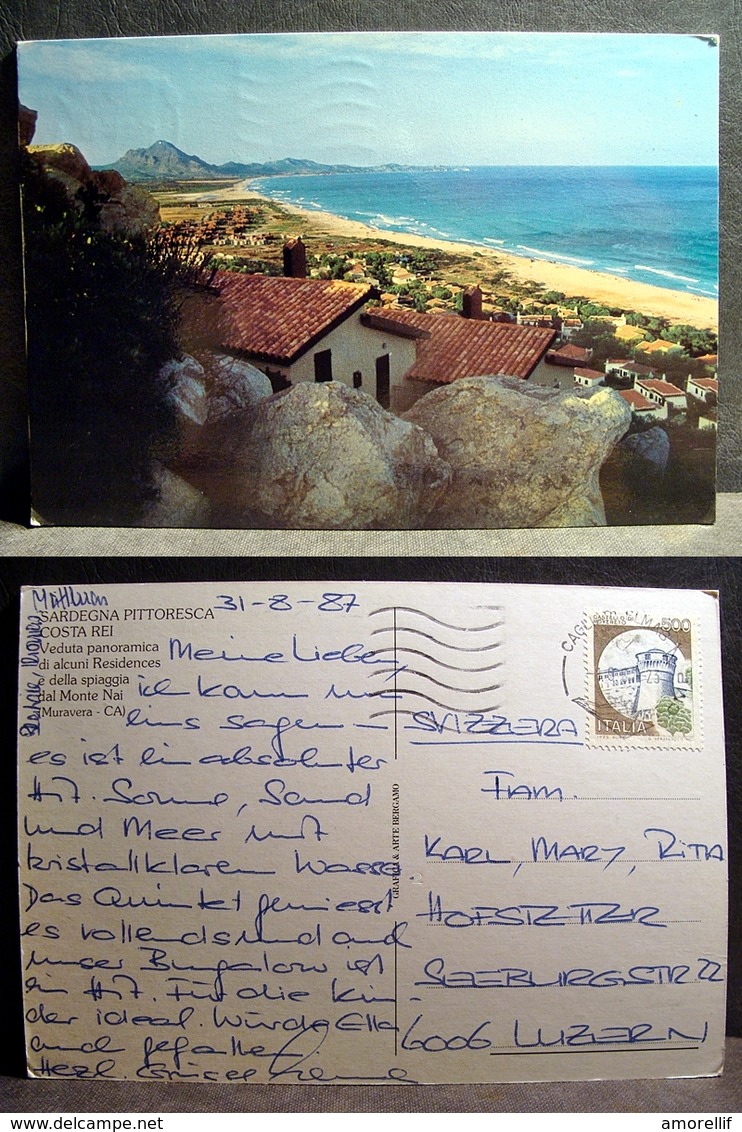 SARDEGNA PITTORESCA
COSTA REI
Veduta panoramica
di alcuni Residences
e della spiaggia
dal Monte Nai
(Muravera - CA)
31-8-87
Meine Lieben,
ich kann nur
eins sagen –
es ist ein absoluter
Hit. Sonne, Sand
und Meer mit
kristallklarem Wasser.
Das Quintet geniesst
es vollends und auch
unser Bungalow ist
ein Hit. Für die Kin-
der ideal. Würde Ella
auch gefallen.
Herzl. Grüsse
GRAFICA & ARTE BERGAMO
500
ITALIA
SVIZZERA
FAM.
KARL, MARY, RITA
HOFSTETTER
SEEBURGSTR 22
6006 LUZERN
amorellif